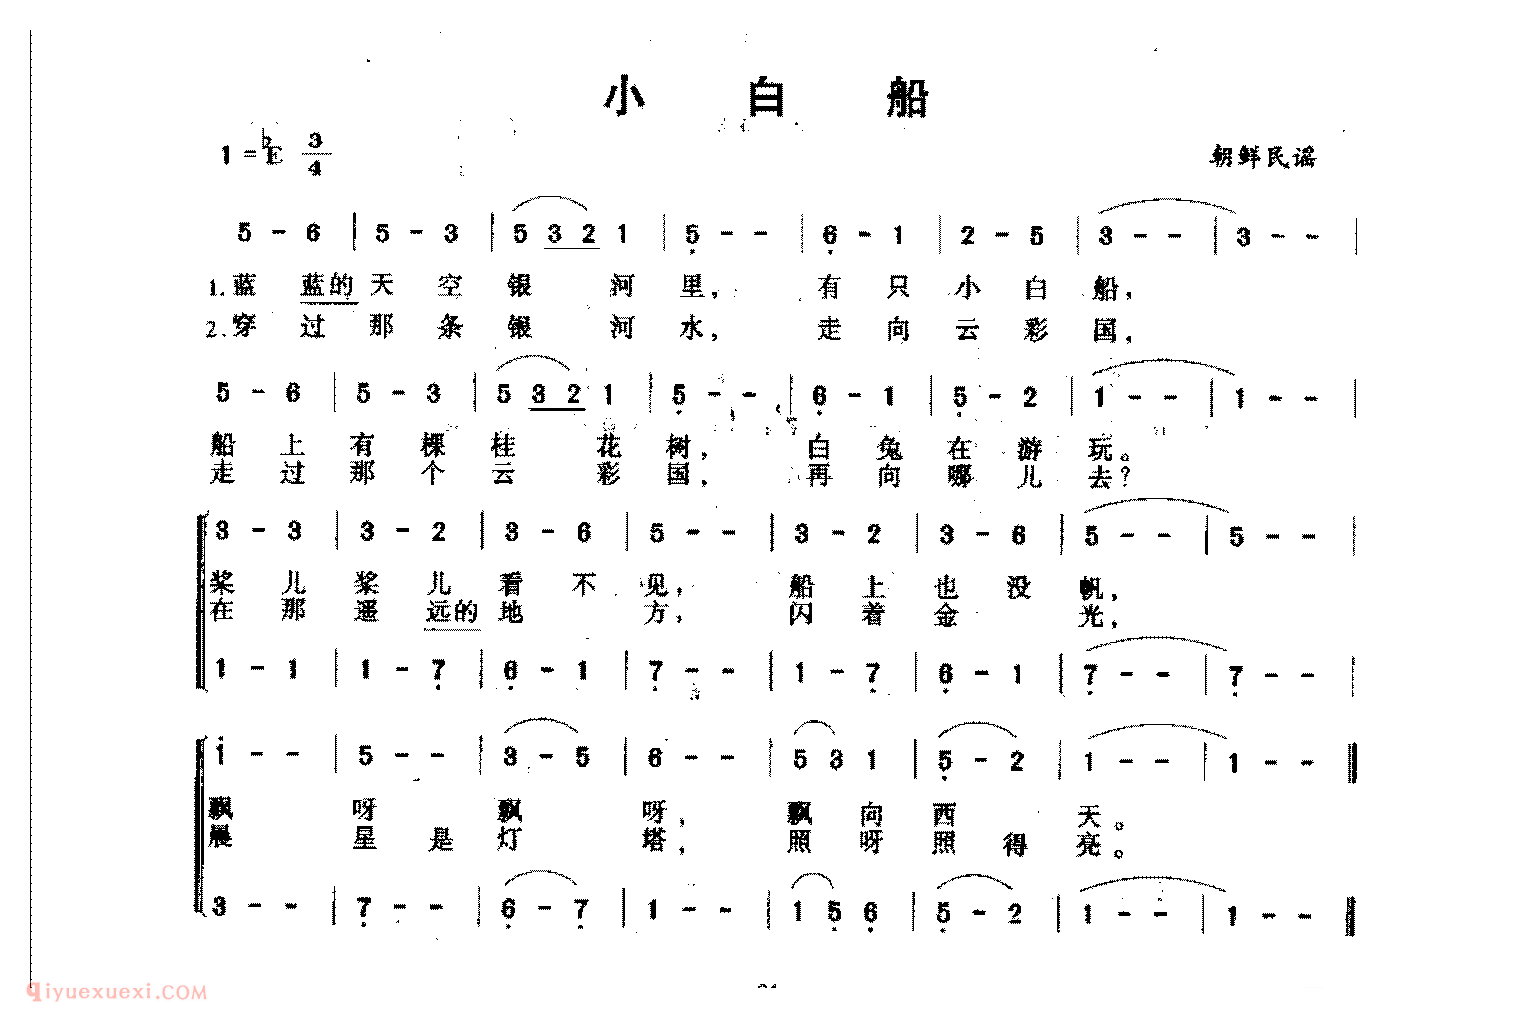 小 白 船
1=♭E 3/4 朝鲜民谣
5 - 6 | 5 - 3 | 5 3 2 1 | 5̣ - - | 6̣ - 1 | 2 - 5 | 3 - - | 3 - - |
1.蓝 蓝的 天 空 银 河 里， 有 只 小 白 船，
2.穿 过 那 条 银 河 水， 走 向 云 彩 国，
5 - 6 | 5 - 3 | 5 3 2 1 | 5̣ - - | 6̣ - 1 | 5̣ - 2 | 1 - - | 1 - - |
船 上 有 棵 桂 花 树， 白 兔 在 游 玩。
走 过 那 个 云 彩 国， 再 向 哪 儿 去？
3 - 3 | 3 - 2 | 3 - 6 | 5 - - | 3 - 2 | 3 - 6 | 5 - - | 5 - - |
桨 儿 桨 儿 看 不 见， 船 上 也 没 帆，
在 那 遥 远的 地 方， 闪 着 金 光，
1 - 1 | 1 - 7̣ | 6̣ - 1 | 7̣ - - | 1 - 7̣ | 6̣ - 1 | 7̣ - - | 7̣ - - |
1̇ - - | 5 - - | 3 - 5 | 6 - - | 5 3 1 | 5̣ - 2 | 1 - - | 1 - - ‖
飘 呀 飘 呀， 飘 向 西 天。
晨 星 是 灯 塔， 照 呀 照 得 亮。
3 - - | 7̣ - - | 6̣ - 7̣ | 1 - - | 1 5̣ 6̣ | 5̣ - 2 | 1 - - | 1 - - ‖
qiyuexuexi.COM